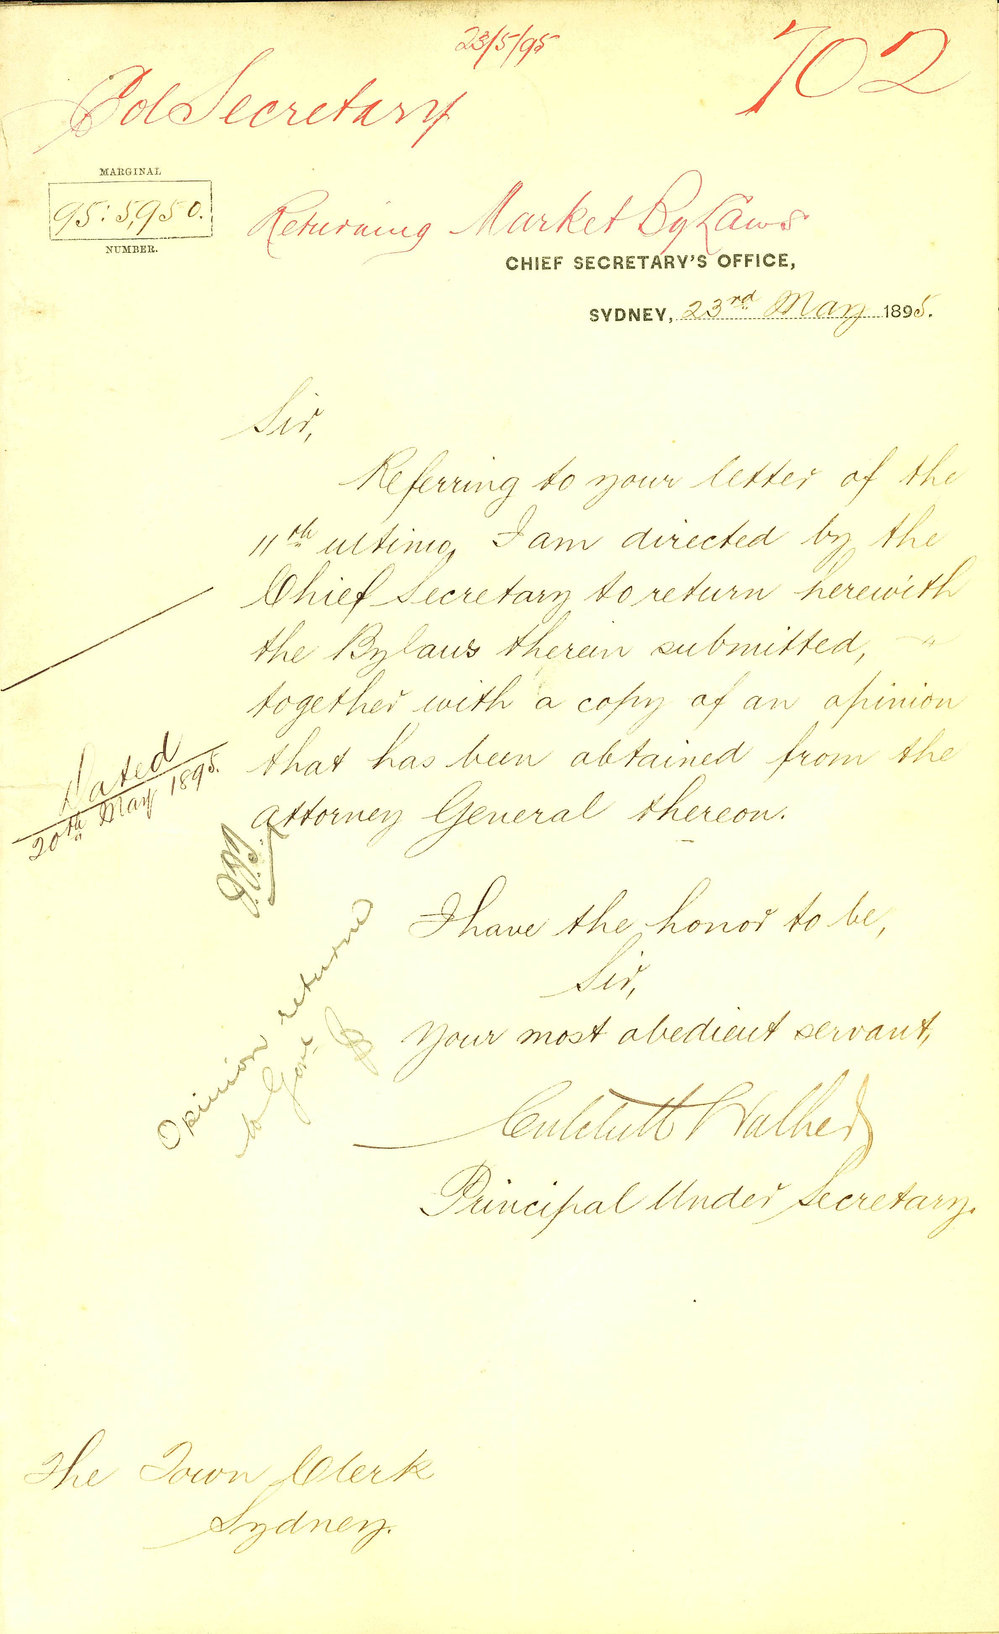 23/5/95
702
Col Secretary
MARGINAL
95:5,950.
NUMBER.
Returning Market By Laws
CHIEF SECRETARY'S OFFICE,
SYDNEY, 23rd May 1895.
Sir,
Referring to your letter of the
11th ultimo, I am directed by the
Chief Secretary to return herewith
the Bylaws therein submitted,
together with a copy of an opinion
that has been obtained from the
Attorney General thereon.
Dated
20th May 1895.
I have the honor to be,
Sir,
Your most obedient servant,
Critchett Walker
Principal Under Secretary.
Opinion returned
to Govt
The Town Clerk
Sydney.